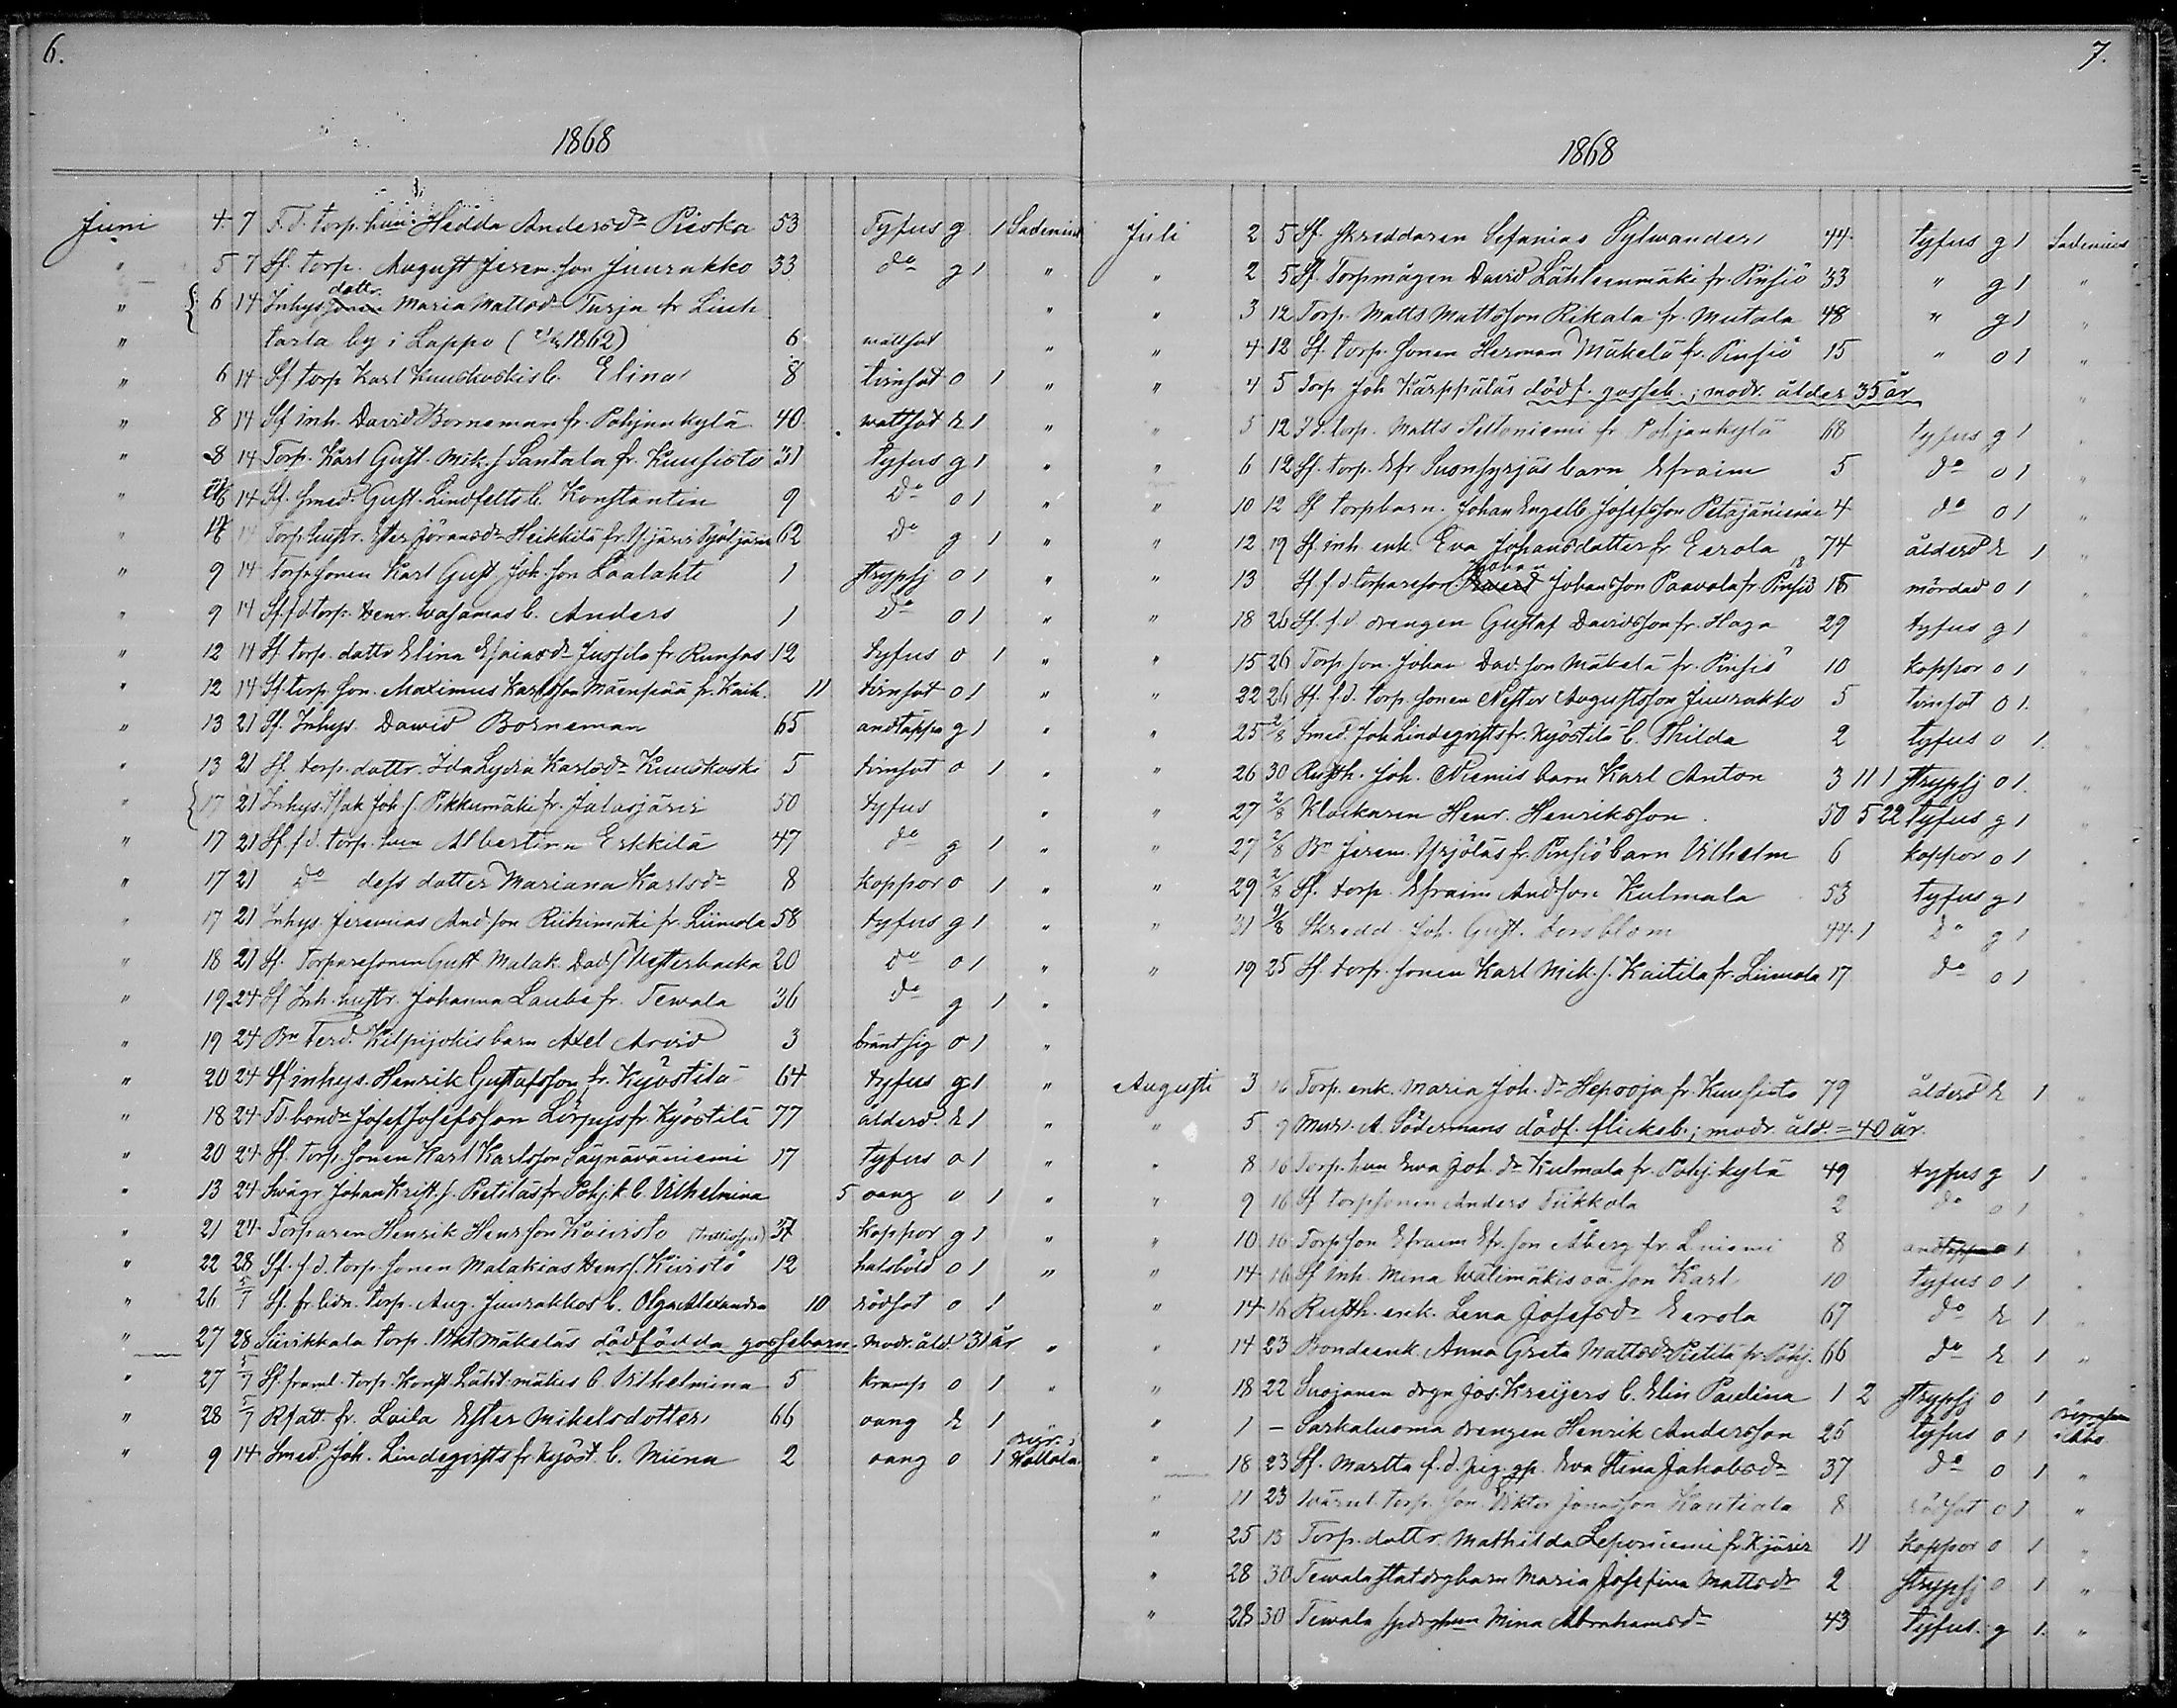 6.
1868
Juni 4 7 F.d. torp. hun Hedda Andersdr Pieska 53 Tyfus g 1 Sadenius
" 5 7 Sf. torp. August Jerem.son Juurakko 33 do g 1 "
" 6 14 Inhys dottr. Maria Mattsdr Turja fr Liuh "
" tarla by i Lappo (1862) 6 wattsot "
" 6 14 Sf torp Karl Kuuskoskis b. Elina 8 tvinsot o 1 "
" 8 14 Sf inh. David Borneman fr. Pohjankylä 40 wattsot E 1 "
" 8 14 Torp. Karl Gust. Mik. s Santala fr. Kuusisto 31 tyfus g 1 "
" 14 Sf. smed. Gust. Lindfelts b. Konstantin 9 do o 1 "
" 14 Torp. hustr. Ester Jöransdr Heikkilä fr. 62 do g 1 "
" 9 14 Torp.sonen Karl Gust Joh. son Laalahti 1 strypsj o 1 "
" 9 14 Sf. f.d. torp. Henr. Wasamas b. Anders 1 do o 1 "
" 12 14 Sf torp. dottr Elina Esaiasdr Jussila fr Runsas 12 tyfus o 1 "
" 12 14 Sf. torp. son. Maximus Karlsson Mäenpää fr. Kuik. 11 tvinsot o 1 "
" 13 21 Sf. Inhys. Dawid Borneman 65 andtäppa g 1 "
" 13 21 Sf. torp. dottr. Ida Lydia Karlsdr Kuuskoski 5 tvinsot o 1 "
" 17 21 Inhys. Isak Joh s. Pikkumäki fr. Jalasjärvi 50 tyfus "
" 17 21 Sf f.d. torp. hun Albertina Erkkilä 47 do g 1 "
" 17 21 do dess dotter Mariana Karlsdr 8 koppor o 1 "
" 17 21 Inhys. Jeremias Andson Riihimäki fr. Liimola 58 tyfus g 1 "
" 18 21 Sf. Torparesonen Gust. Malak. Dav. s Westerbacka 20 do o 1 "
" 19 24 Sf Inh. hustr. Johanna Laube fr. Tewala 36 do g 1 "
" 19 24 Bn Ferd. Kilpijokis barn Axel Arvid 3 bränt sig o 1 "
" 20 24 Sf inhys. Henrik Gustafsson fr. Kyöstilä 64 tyfus g 1 "
" 18 24 Fd. bondn Josef Josefsson Lörpys fr Kyöstilä 77 ålders. E 1 "
" 20 24 Sf. torp. sonen Karl Karlsson Säynäväniemi 17 tyfus o 1 "
" 13 24 Swågr. Johan Krist. s. Pietiläs fr. Pohj. k. b. Vilhelmina 5 oang o 1 "
" 21 24 Torparen Henrik Henrsson Koivisto 37 koppor g 1 "
" 22 28 Sf. f.d. torp. sonen Malakias Henr s. Kivistö 12 halsböld o 1 "
" 26 5/7 Sf. fr. lidn. torp. Aug. Juurakkos b. Olga Alexandra 10 rödsot o 1
" 27 28 Siirikkala torp. Vikt Mäkeläs dödfödda gossebarn. modr. åld. 31 år "
" 27 5/7 Sf. framl. torp. Konst Läht.mäkis b. Vilhelmina 5 kramp o 1 "
" 28 5/7 Rfatt. fr. Laila Ester Mikelsdotter 66 oang E 1 "
" 9 14 Smed. Joh. Lindeqvists fr. Kyöst. b. Miina 2 oang o 1 begr. i Kollola

7.
1868
Juli 2 5 Sf. skreddaren Sefanias Sylwander 44 tyfus g 1 Sadenius
" 2 5 Sf. Torpmågen David Lähteenmäki fr. Pinsiö 33 " g 1 "
" 3 12 Torp. Matts Mattsson Rikala fr. Mutala 48 " g 1 "
" 4 12 Sf. torp. sonen Herman Mäkelä fr. Pinsiö 15 " o 1 "
" 4 5 Torp. Joh Kärppäläs dödf. gosseb.; modr. ålder 35 år "
" 5 12 F.d. torp. Matts Peltoniemi fr. Pohjankylä 68 tyfus g 1 "
" 6 12 Sf. torp. Efr Suonsyrjäs barn Efraim 5 do o 1 "
" 10 12 Sf torpbarn. Johan Engelb Josefsson Petäjäniemi 4 do o 1 "
" 12 19 Sf. inh. enk. Eva Johansdotter fr Eerola 74 ålderd E 1 "
" 13 Sf f d torpareson Johan Johansson Paavola fr Pinsiö 18 mördad o 1 "
" 18 26 Sf. f.d. drengen Gustaf Davidsson fr. Haga 29 tyfus g 1 "
" 15 26 Torp. son. Johan Dav. son Mäkelä fr. Pinsiö 10 koppor o 1 "
" 22 26 Sf. f.d. torp. sonen Nestor Augustsson Juurakko 5 tvinsot o 1. "
" 25 2/8 Smed. Joh Lindeqvists fr. Kyöstilä b. Thilda 2 tyfus o 1. "
" 26 30 Rusth. Joh. Niemis barn Karl Anton 3 11 1 strypsj o 1. "
" 27 2/8 Klockaren Henr. Henriksson 50 5 22 tyfus g 1 "
" 27 2/8 Bn Jerem. Yrjöläs fr. Pinsiö barn Vilhelm 6 koppor o 1 "
" 29 2/8 Sf. torp. Efraim Andsson Kulmala 53 tyfus g 1 "
" 31 9/8 Skredd. Joh. Gust. Forsblom 44 1 do g 1 "
" 19 25 Sf. torp. sonen Karl Mik. s. Kaitila fr. Liimola 17 do o 1 "
Augusti 3 16 Torp. enk. Maria Joh. dr Hepooja fr. Kuusisto 79 ålderd E 1 "
" 5 9 Mur. A. Södermans dödf. flickeb.; modr. åld. = 40 år. "
" 8 16 Torp. hun Ewa Joh. dr Kulmala fr. Pohj. kylä 49 tyfus g 1 "
" 9 16 Sf torpsonen Anders Tiikkala 2 do o 1 "
" 10 16 Torpson Efraim Efr. son Åberg fr. L niemi 8 andtäppa o 1 "
" 14 16 Sf inh. Mina Välimäkis oä. son Karl 10 tyfus o 1 "
" 14 16 Rusth. enk. Lena Josefsdr Eerola 67 do E 1 "
" 14 23 Bondeenk. Anna Greta Mattsdr Pietilä fr. Pohj. 66 do E 1 "
" 18 22 Suojanen drgn Jos. Kreijers b. Elin Paulina 1 2 strypsj o 1
" 1 – Sarkaluoma drengen Henrik Andersson 25 tyfus o 1 begrafven i Åbo
" 18 23 Sf. Martta f.d. pig. gp. Eva Stina Jakobsdr 37 do o 1 "
" 11 23 torp. son. Viktor Jonasson Kautiala 8 rödsot o 1 "
" 25 13 Torp. dottr. Mathilda Leponiemi fr. Kjärvi 11 koppor o 1 "
" 28 30 Tewala statdrgbarn Maria Josefina Mattsdr 2 strypsj o 1 "
" 28 30 Tewala spdrghun Mina Abrahamsdr 43 tyfus. g 1. "